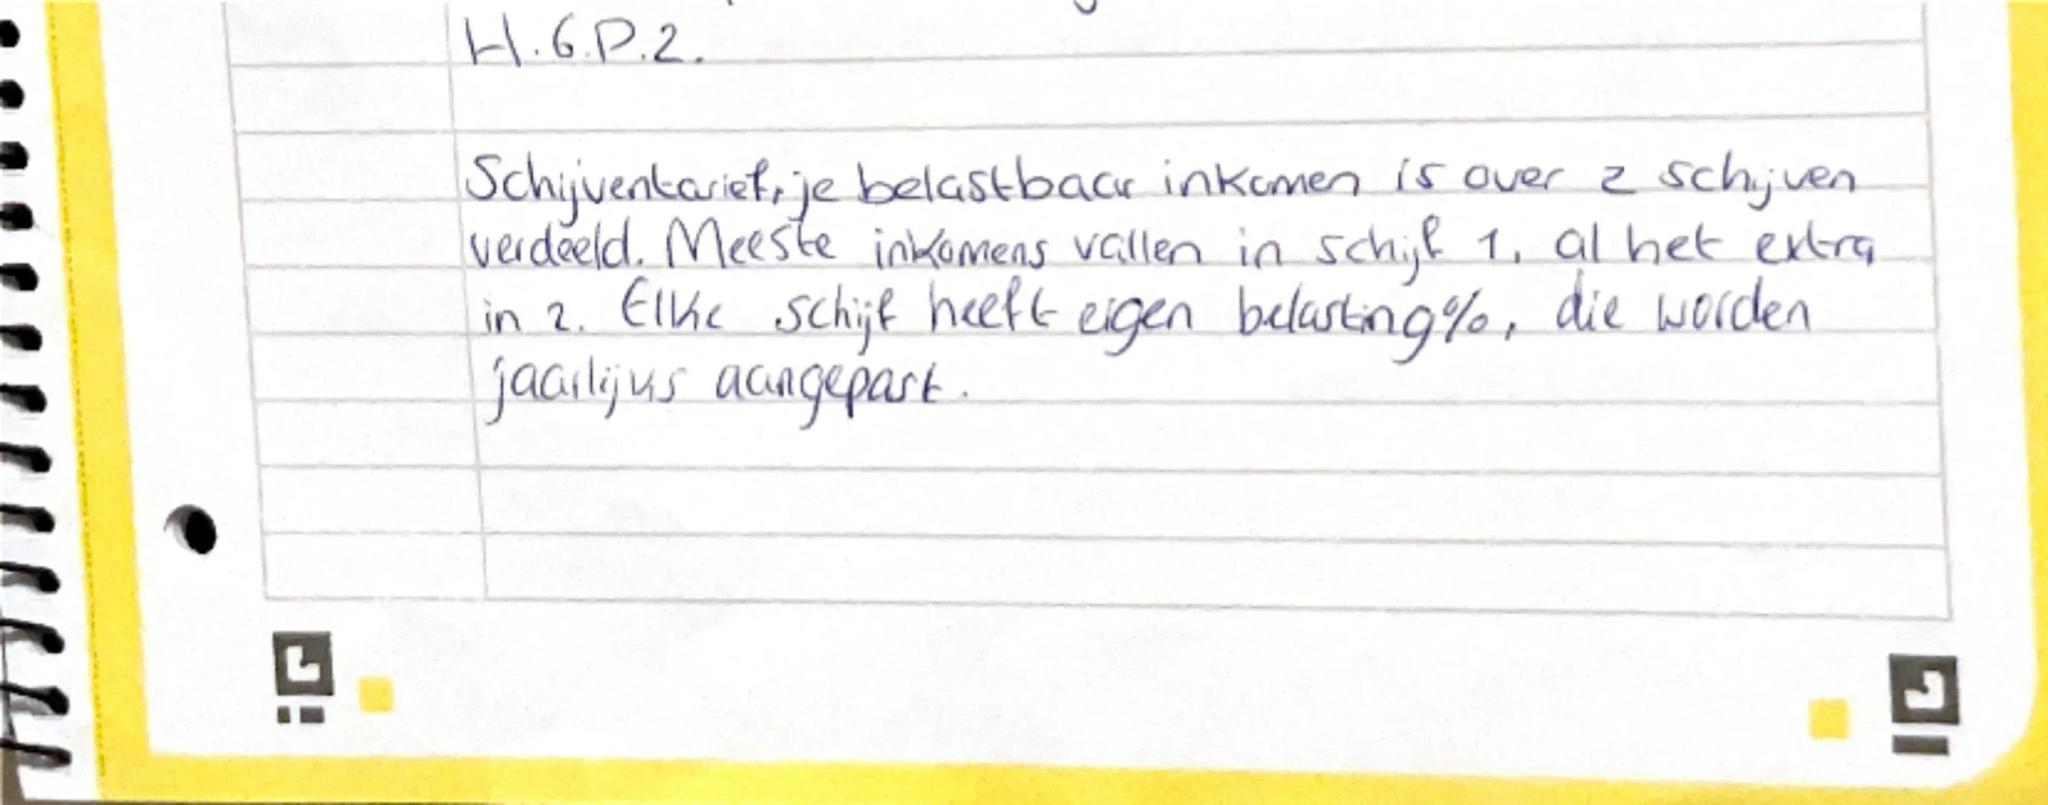 H.6.P.2.
Schijventarief, je belastbaar inkomen is over 2 schijven
verdeeld. Meeste inkomens vallen in schijf 1, al het extra
in 2. Elke schijf heeft eigen belasting%, die worden
jaarlijks aangepast.